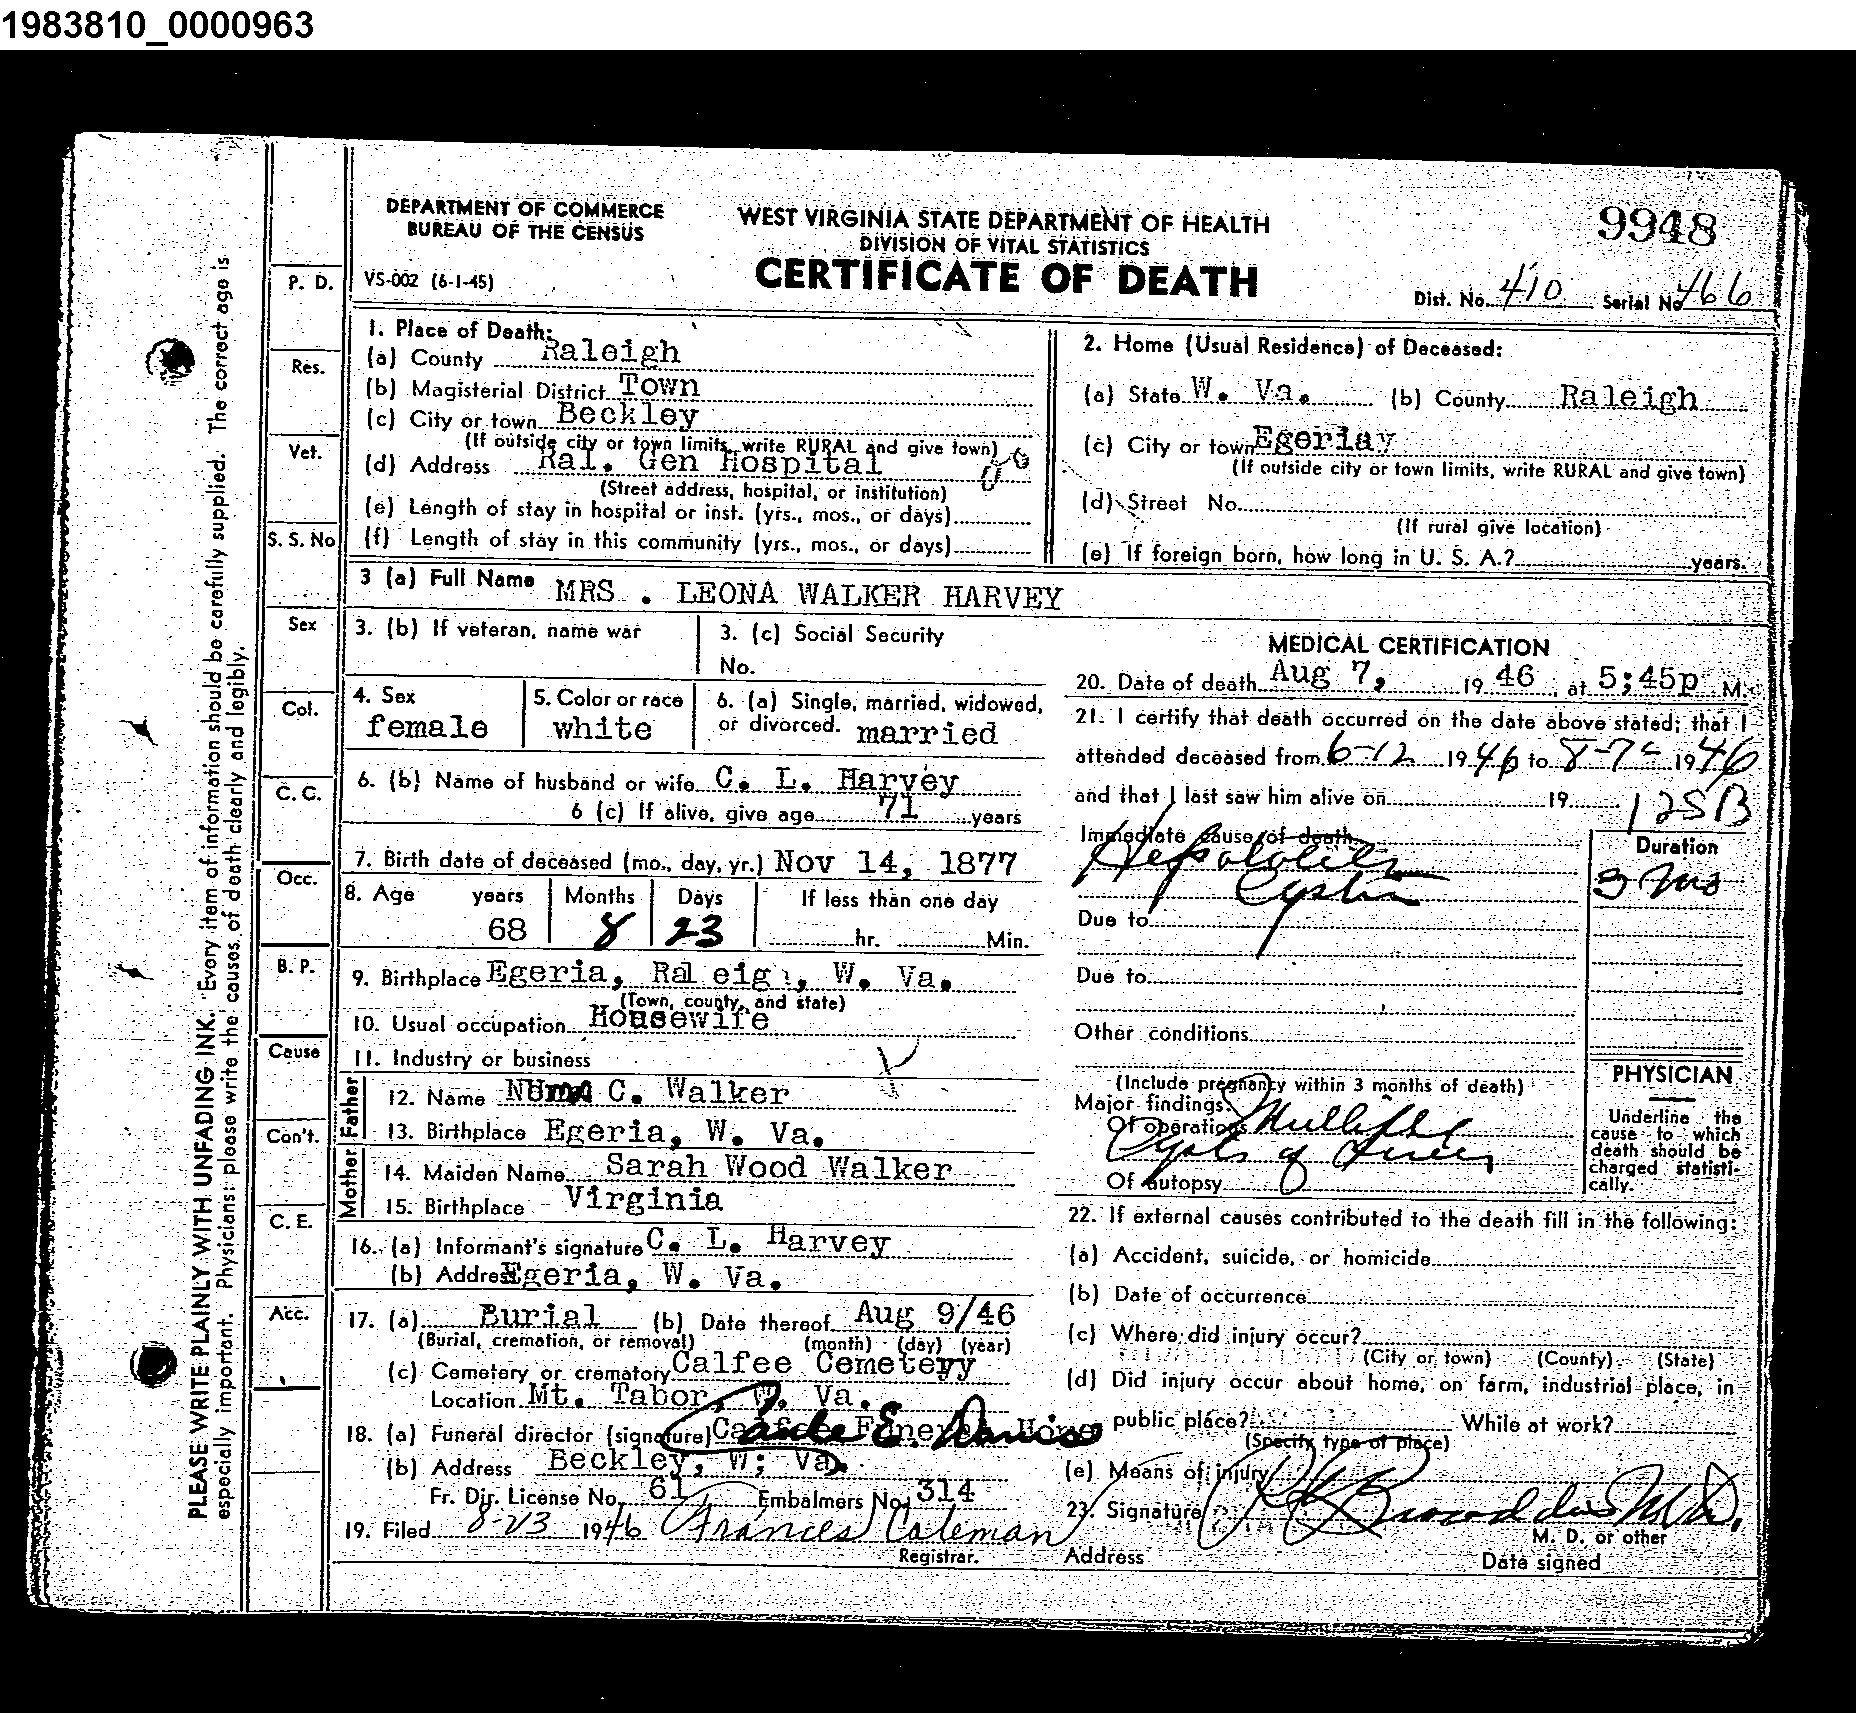 1983810_0000963
DEPARTMENT OF COMMERCE
BUREAU OF THE CENSUS
WEST VIRGINIA STATE DEPARTMENT OF HEALTH
DIVISION OF VITAL STATISTICS
CERTIFICATE OF DEATH
9948
VS-002 (6-1-45)
Dist. No. 410 Serial No 466
PLEASE WRITE PLAINLY WITH UNFADING INK. Every item of information should be carefully supplied. The correct age is
especially important. Physicians: please write the causes of death clearly and legibly.
P. D.
Res.
Vet.
S. S. No
Sex
Col.
C. C.
Occ.
B. P.
Cause
Con't.
C. E.
Acc.
1. Place of Death:
(a) County Raleigh
(b) Magisterial District Town
(c) City or town Beckley
(If outside city or town limits, write RURAL and give town)
(d) Address Ral. Gen Hospital
(Street address, hospital, or institution)
(e) Length of stay in hospital or inst. (yrs., mos., or days)
(f) Length of stay in this community (yrs., mos., or days)
2. Home (Usual Residence) of Deceased:
(a) State W. Va. (b) County Raleigh
(c) City or town Egeriay
(If outside city or town limits, write RURAL and give town)
(d) Street No.
(If rural give location)
(e) If foreign born, how long in U. S. A.? years.
3 (a) Full Name MRS . LEONA WALKER HARVEY
3. (b) If veteran, name war
3. (c) Social Security
No.
4. Sex
female
5. Color or race
white
6. (a) Single, married, widowed,
or divorced. married
6. (b) Name of husband or wife C. L. Harvey
6 (c) If alive, give age 71 years
7. Birth date of deceased (mo., day, yr.) Nov 14, 1877
8. Age years Months Days If less than one day
68 8 23 hr. Min.
9. Birthplace Egeria, Raleigh, W. Va.
(Town, county, and state)
10. Usual occupation Housewife
11. Industry or business
Father
12. Name Numa C. Walker
13. Birthplace Egeria, W. Va.
Mother
14. Maiden Name Sarah Wood Walker
15. Birthplace Virginia
16. (a) Informant's signature C. L. Harvey
(b) Address Egeria, W. Va.
17. (a) Burial (b) Date thereof Aug 9/46
(Burial, cremation, or removal) (month) (day) (year)
(c) Cemetery or crematory Calfee Cemetery
Location Mt. Tabor, W. Va.
18. (a) Funeral director (signature) Calfee Funeral Home
(b) Address Beckley, W; Va.
Fr. Dir. License No. 61 Embalmers No. 314
19. Filed 8-23 1946 Frances Coleman
Registrar.
MEDICAL CERTIFICATION
20. Date of death Aug 7, 19 46 at 5;45p M.
21. I certify that death occurred on the date above stated; that I
attended deceased from 6-12 1946 to 8-7- 1946
and that I last saw him alive on 19
125B
Immediate cause of death
Duration
3 mo
Due to
Due to
Other conditions
(Include pregnancy within 3 months of death)
Major findings:
Of operations Multiple
Cysts of Liver
Of autopsy
PHYSICIAN
Underline the
cause to which
death should be
charged statisti-
cally.
22. If external causes contributed to the death fill in the following:
(a) Accident, suicide, or homicide
(b) Date of occurrence
(c) Where did injury occur?
(City or town) (County) (State)
(d) Did injury occur about home, on farm, industrial place, in
public place? While at work?
(Specify type of place)
(e) Means of injury
23. Signature Broaddus M.D.
M. D. or other
Address
Date signed